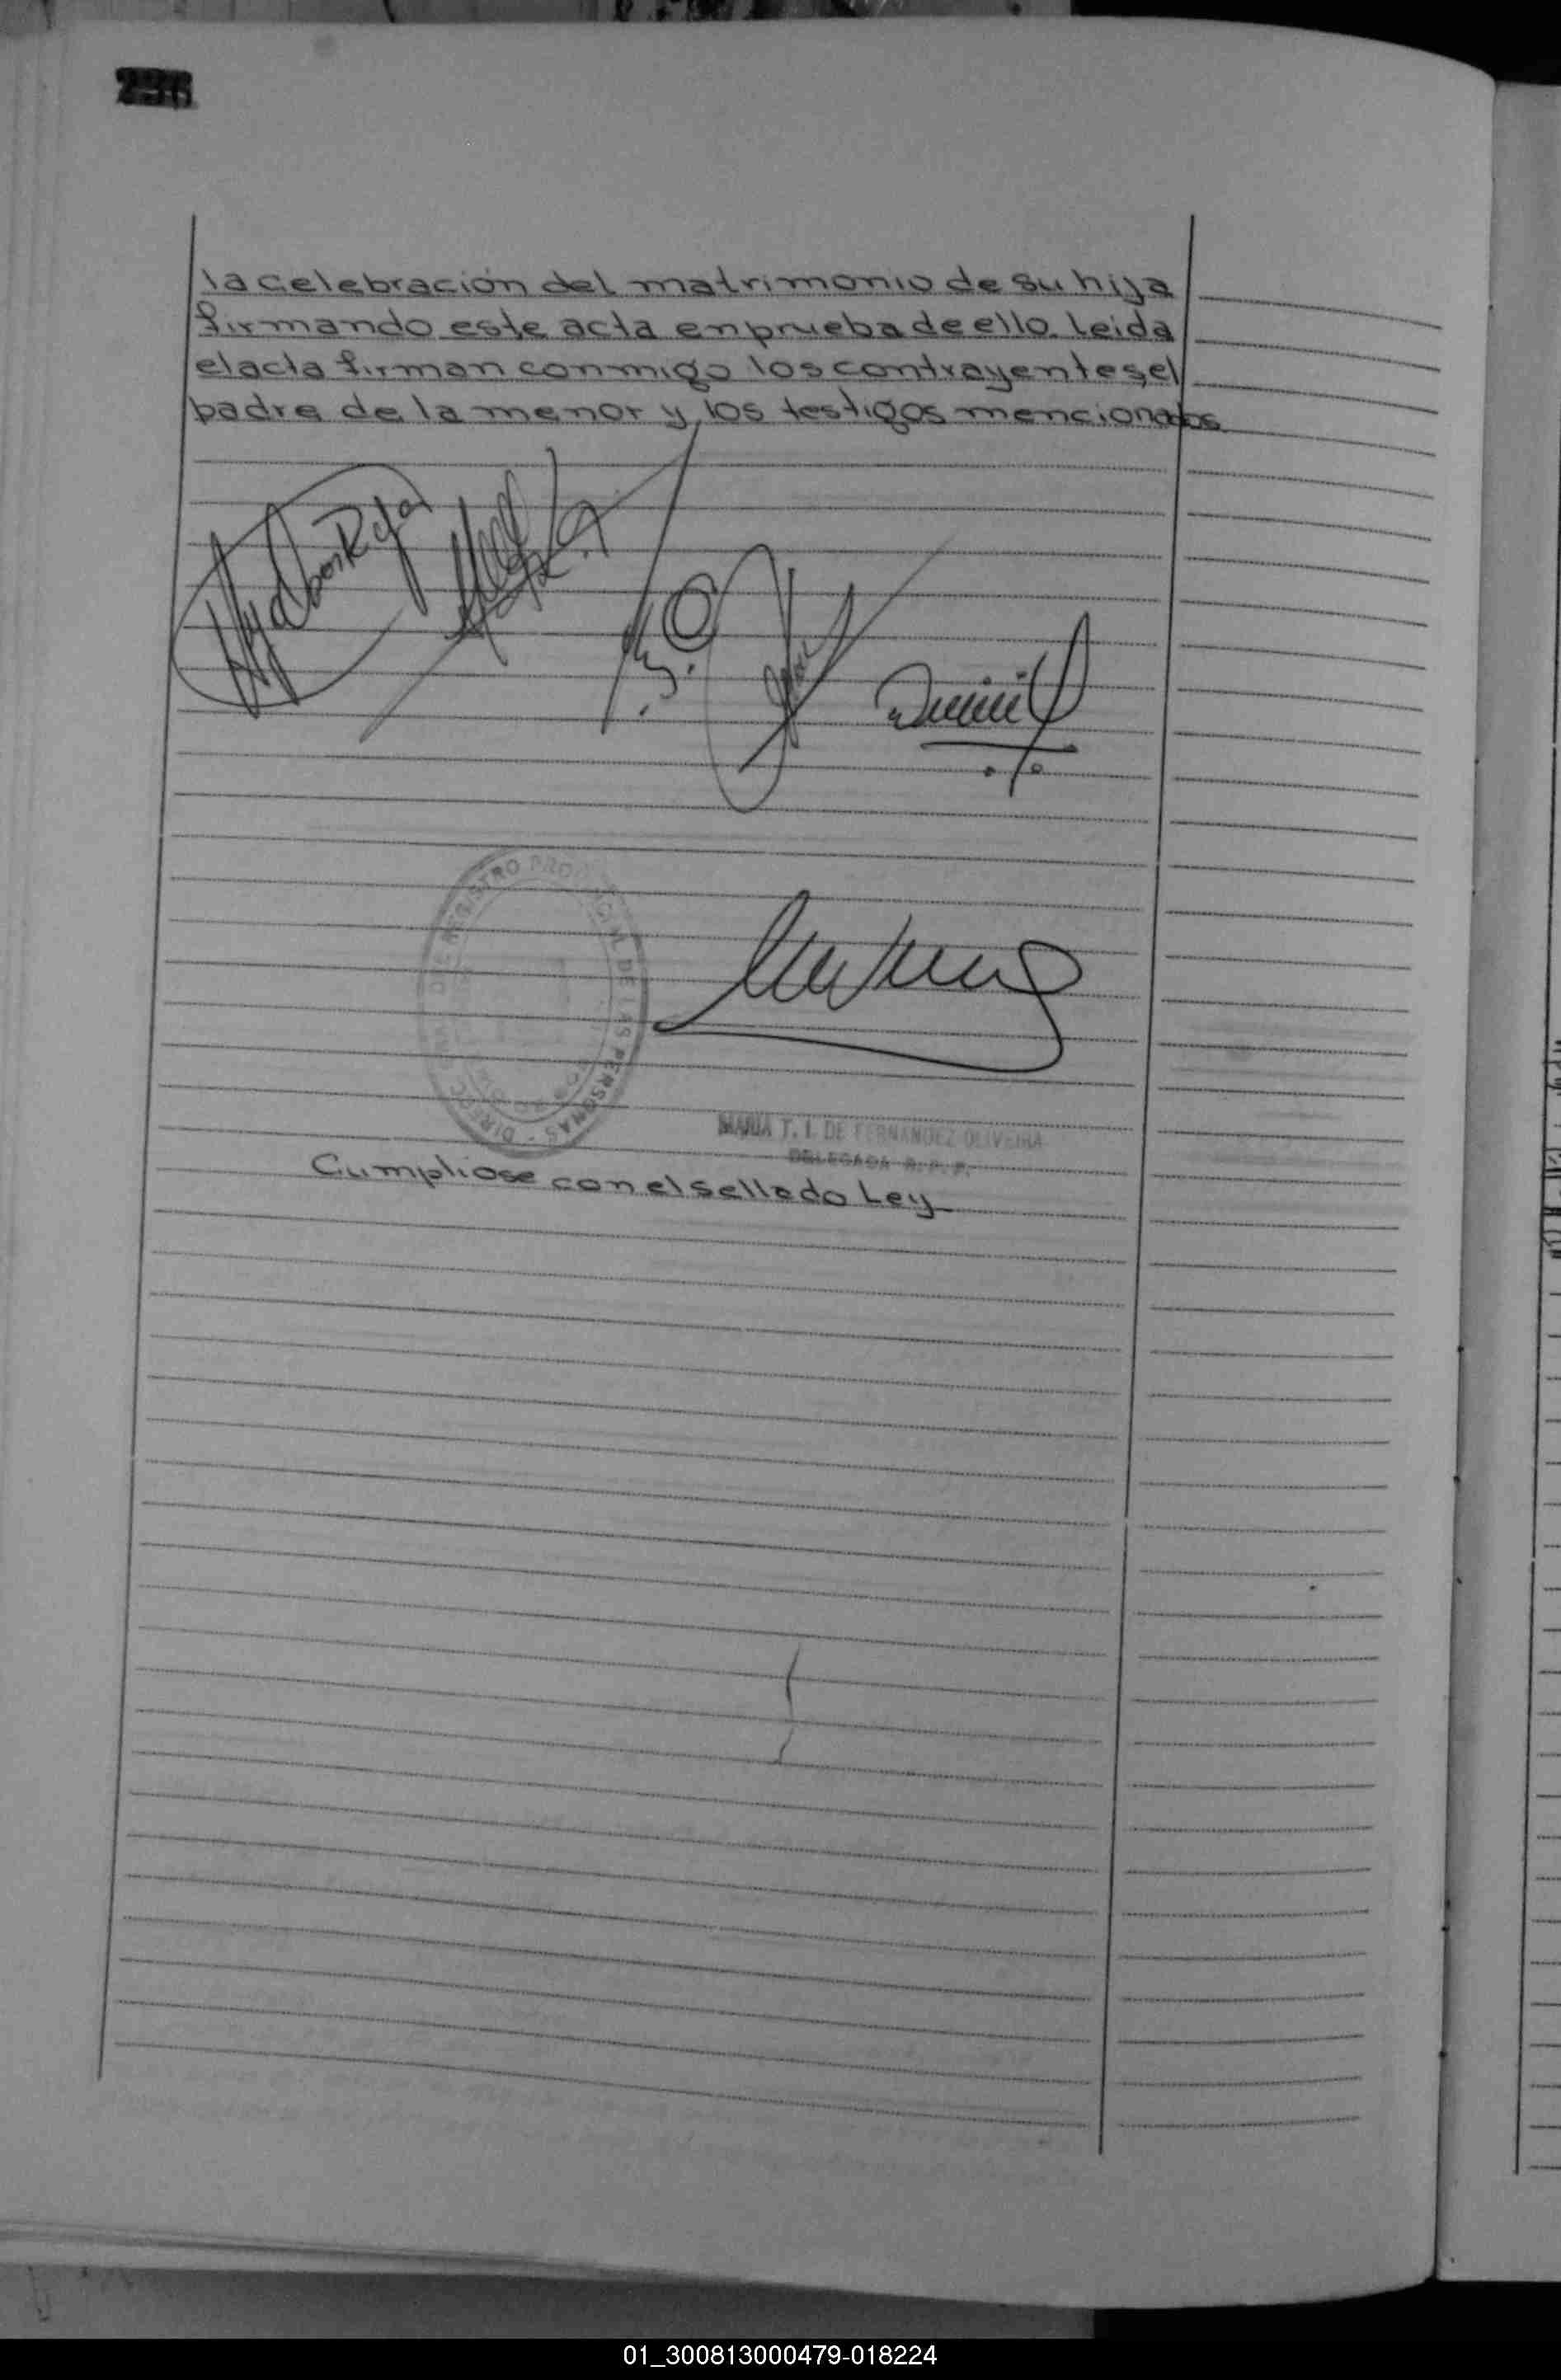 236
la celebración del matrimonio de su hija
firmando este acta en prueba de ello. Leida
el acta firman conmigo los contrayentes, el
padre de la menor y los testigos mencionados
DIRECCION DEL REGISTRO PROVINCIAL DE LAS PERSONAS
MARIA T. I. DE FERNANDEZ OLIVEIRA
DELEGADA R. P. P.
Cumpliose con el sellado Ley
01_300813000479-018224